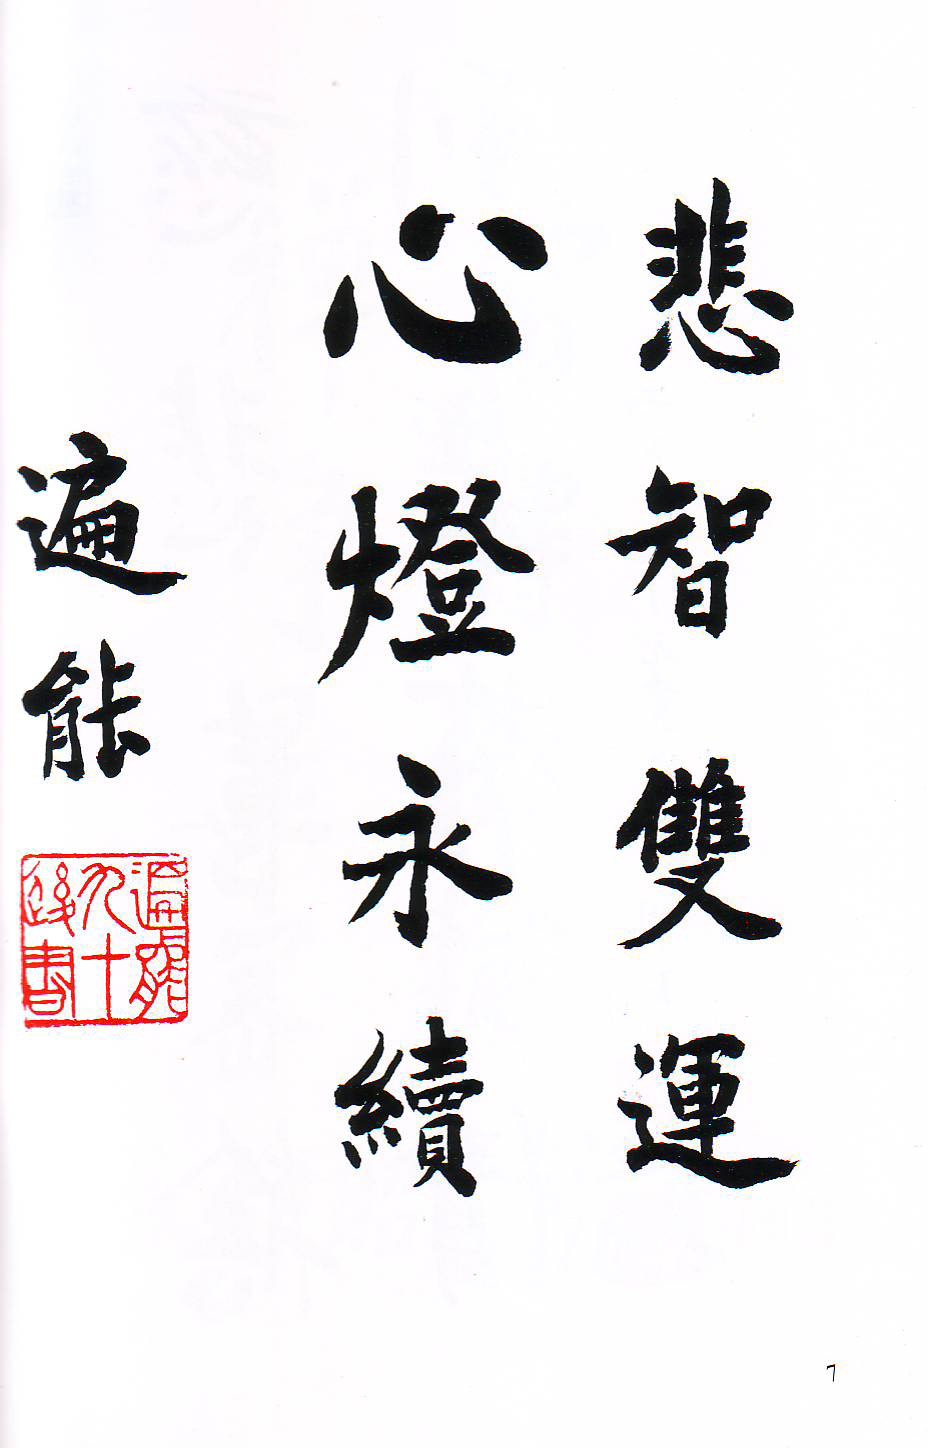 悲智雙運
心燈永續
遍能
遍能
九十
後書
7